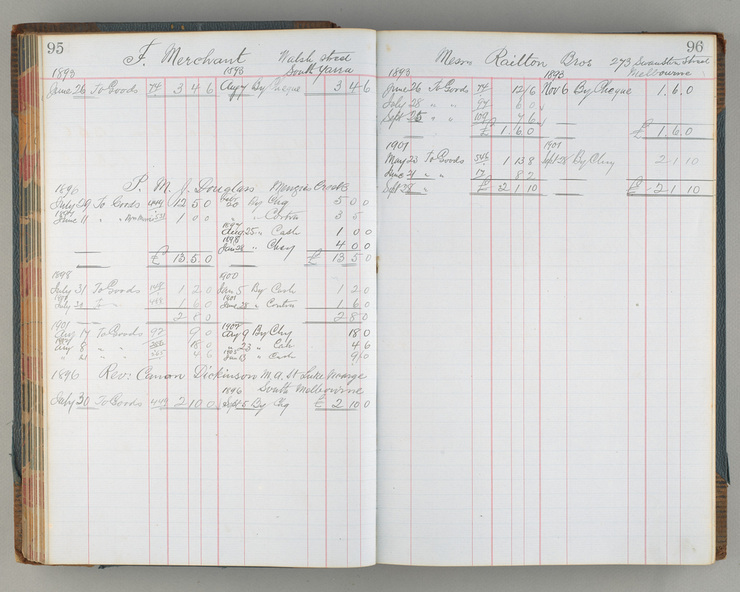 95
F. Merchant Walsh Street
1893 1893 South Yarra
June 26 To Goods 74 3 4 6 Aug 7 By Cheque 3 4 6
1896 P. M. J. Douglass Menzies Creek
July 29 To Goods 12 5 0 By Chq 5 0 0
1897 June 11 " " 531 1 0 0 " " Contra 3 5
1897 Aug 25 " Cash 1 0 0
1898 Jan 28 " Chq 4 0 0
£ 13 5 0 £ 13 5 0
1898 1900
July 31 To Goods 1 2 0 Jan 5 By Cash 1 2 0
July 31 " 1 6 0 1901 June 28 " Contra 1 6 0
2 8 0 2 8 0
1901 1904
Aug 17 To Goods 92 9 0 Aug 9 By Chq 18 0
1904 Aug 8 " " 18 0 " 23 " Cash 4 6
" 21 " " 4 6 1905 Jan 13 " Cash 9 0
1896 Rev: Canon Dickinson M.A. St Luke Vicarage
1896 South Melbourne
July 30 To Goods 449 2 10 0 Sept 5 By Chq £ 2 10 0
96
Messrs Railton Bros 273 Swanston Street
1893 1893 Melbourne
June 26 To Goods 74 12/6 Nov 6 By Cheque 1.6.0
July 28 " " 97 6 0
Sept 25 " " 109 7 6
£ 1.6.0 £ 1.6.0
1901 1901
May 23 To Goods 1 13 8 Sept 28 By Chq 2 1 10
June 21 " " 17 8 2
Sept 28 " £ 2 1 10 £ 2 1 10